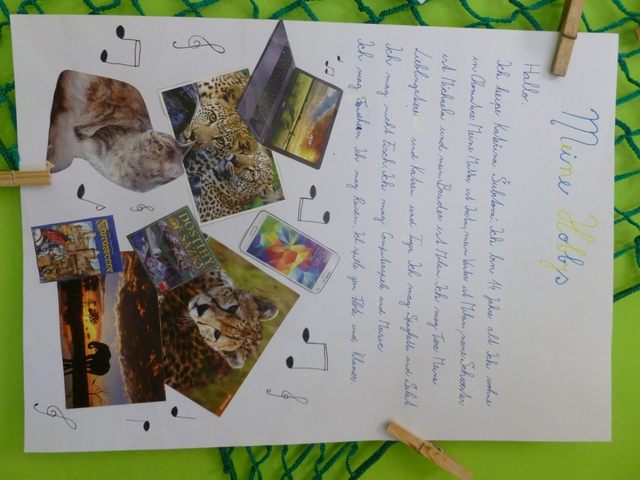 Meine Hobbys
Hallo,
Ich heiße Katarína Ich bin 14 Jahre alt. Ich wohne
in Meine Mutter ist mein Vater ist Milan, meine Schwester
ist Michaela und mein Bruder ist Milan. Ich mag Tiere. Meine
Lieblingstiere und Katzen und Tiger. Ich mag Spaghetti und Salat.
Ich mag nicht Fisch. Ich mag Computerspiele und Musik.
Ich mag Fernsehen. Ich mag Ich spiele gern Flöte und Klavier.
Carcassonne